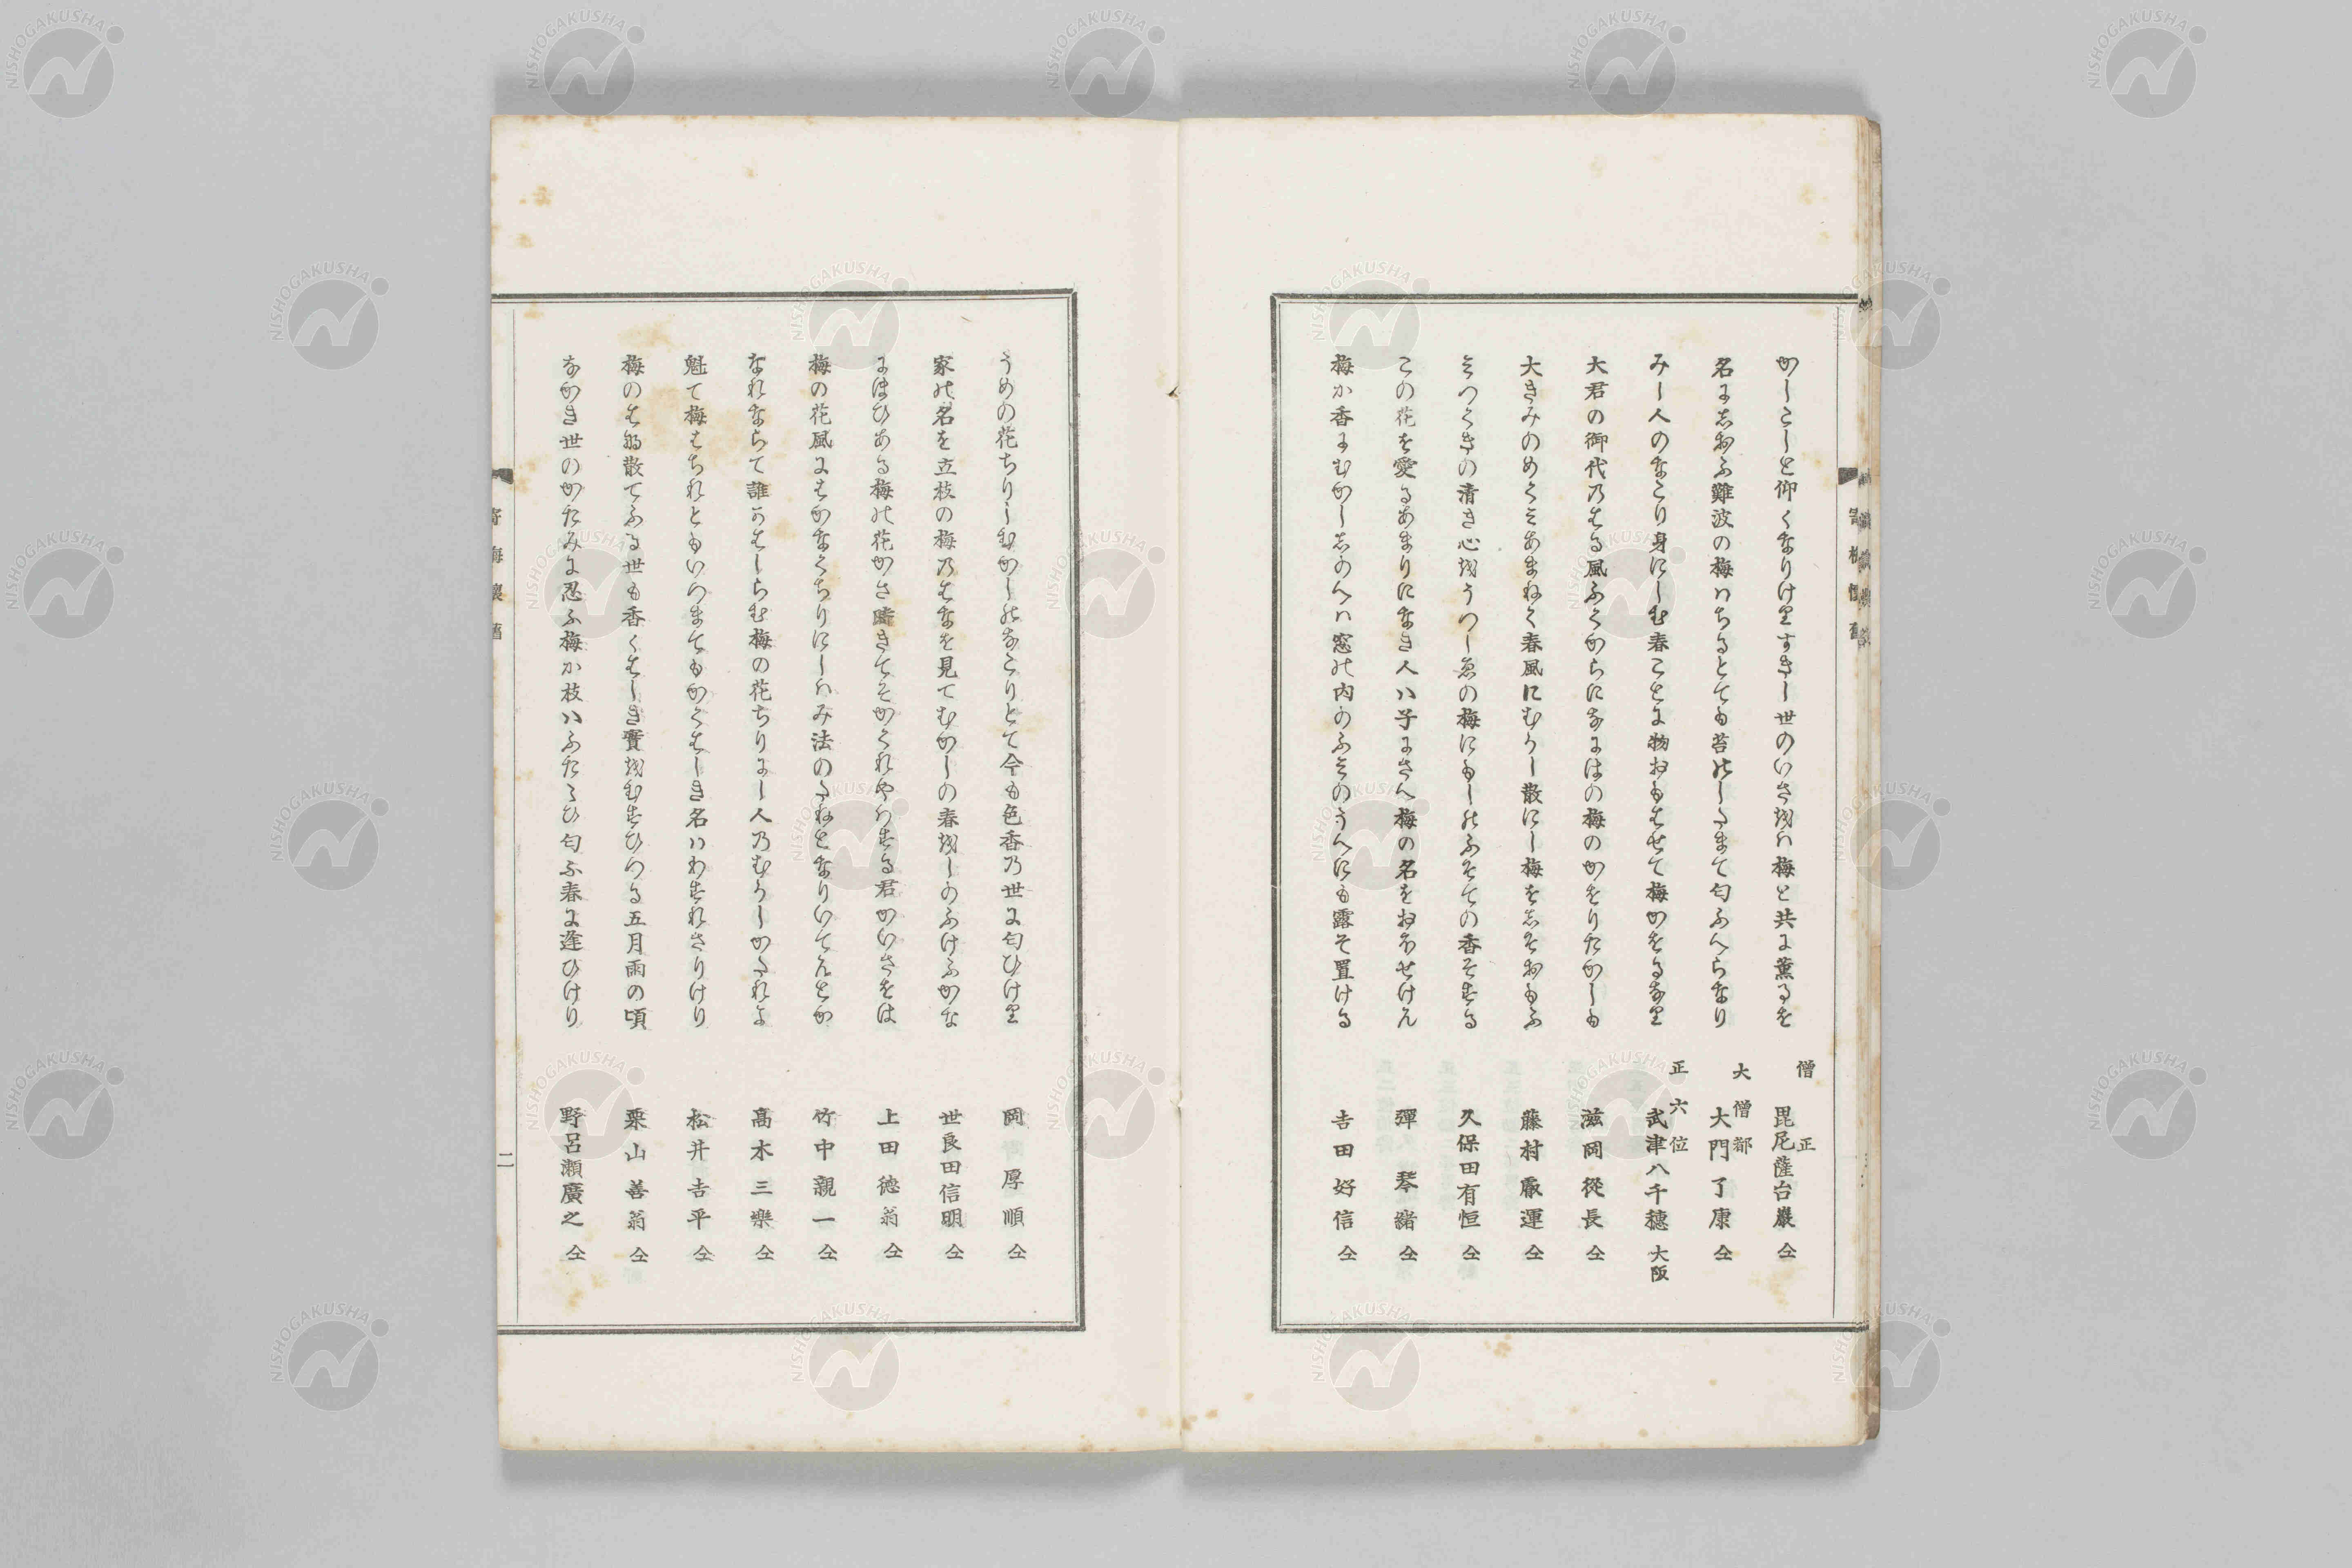 かしこしと仰くなりけりすきし世のいさをは梅と共に薫るを
僧正 毘尼薩台巌 仝
名にしおふ難波の梅はちるとても苔のしたまて匂ふへらなり
大僧都 大門了康 仝
みし人のなこり身にしむ春ことに物おもはせて梅かをるなり
正六位 武津八千穂 大阪
大君の御代のはる風ふくからになにはの梅のかをりたかしも
滋岡従長 仝
大きみのめくみあまねく春風にむかし散にし梅をしそおもふ
藤村厳運 仝
みつくきの清き心をうつしゑの梅にもしのふそての香そする
久保田有恒 仝
この花を愛るあまりになき人は子にさへ梅の名をおほせけん
彈琴緒 仝
梅か香にむかししのへは窓の内のふみのうへにも露そ置ける
吉田好信 仝
うめの花ちりしむかしのなこりとて今も色香の世に匂ひけり
岡厚順 仝
家の名を立枝の梅のはなを見てむかしの春をしのふけふかな
世良田信明 仝
にほひある梅の花かさ時きてそかくれやはする君かいさをは
上田徳翁 仝
梅の花風にはかなくちりにしはみ法のたねとなりいてんとか
竹中親一 仝
なれならて誰かはしらむ梅の花ちりにし人のむかしかたれよ
高木三樂 仝
魁て梅はちれともいつまてもかくはしき名はわすれさりけり
松井吉平 仝
梅のはな散てふる世も香くはしき實をむすひつる五月雨の頃
栗山善翁 仝
なかき世のかたみに忍ふ梅か枝はふたゝひ匂ふ春に逢ひけり
野呂瀬廣之 仝
寄梅懷舊
二